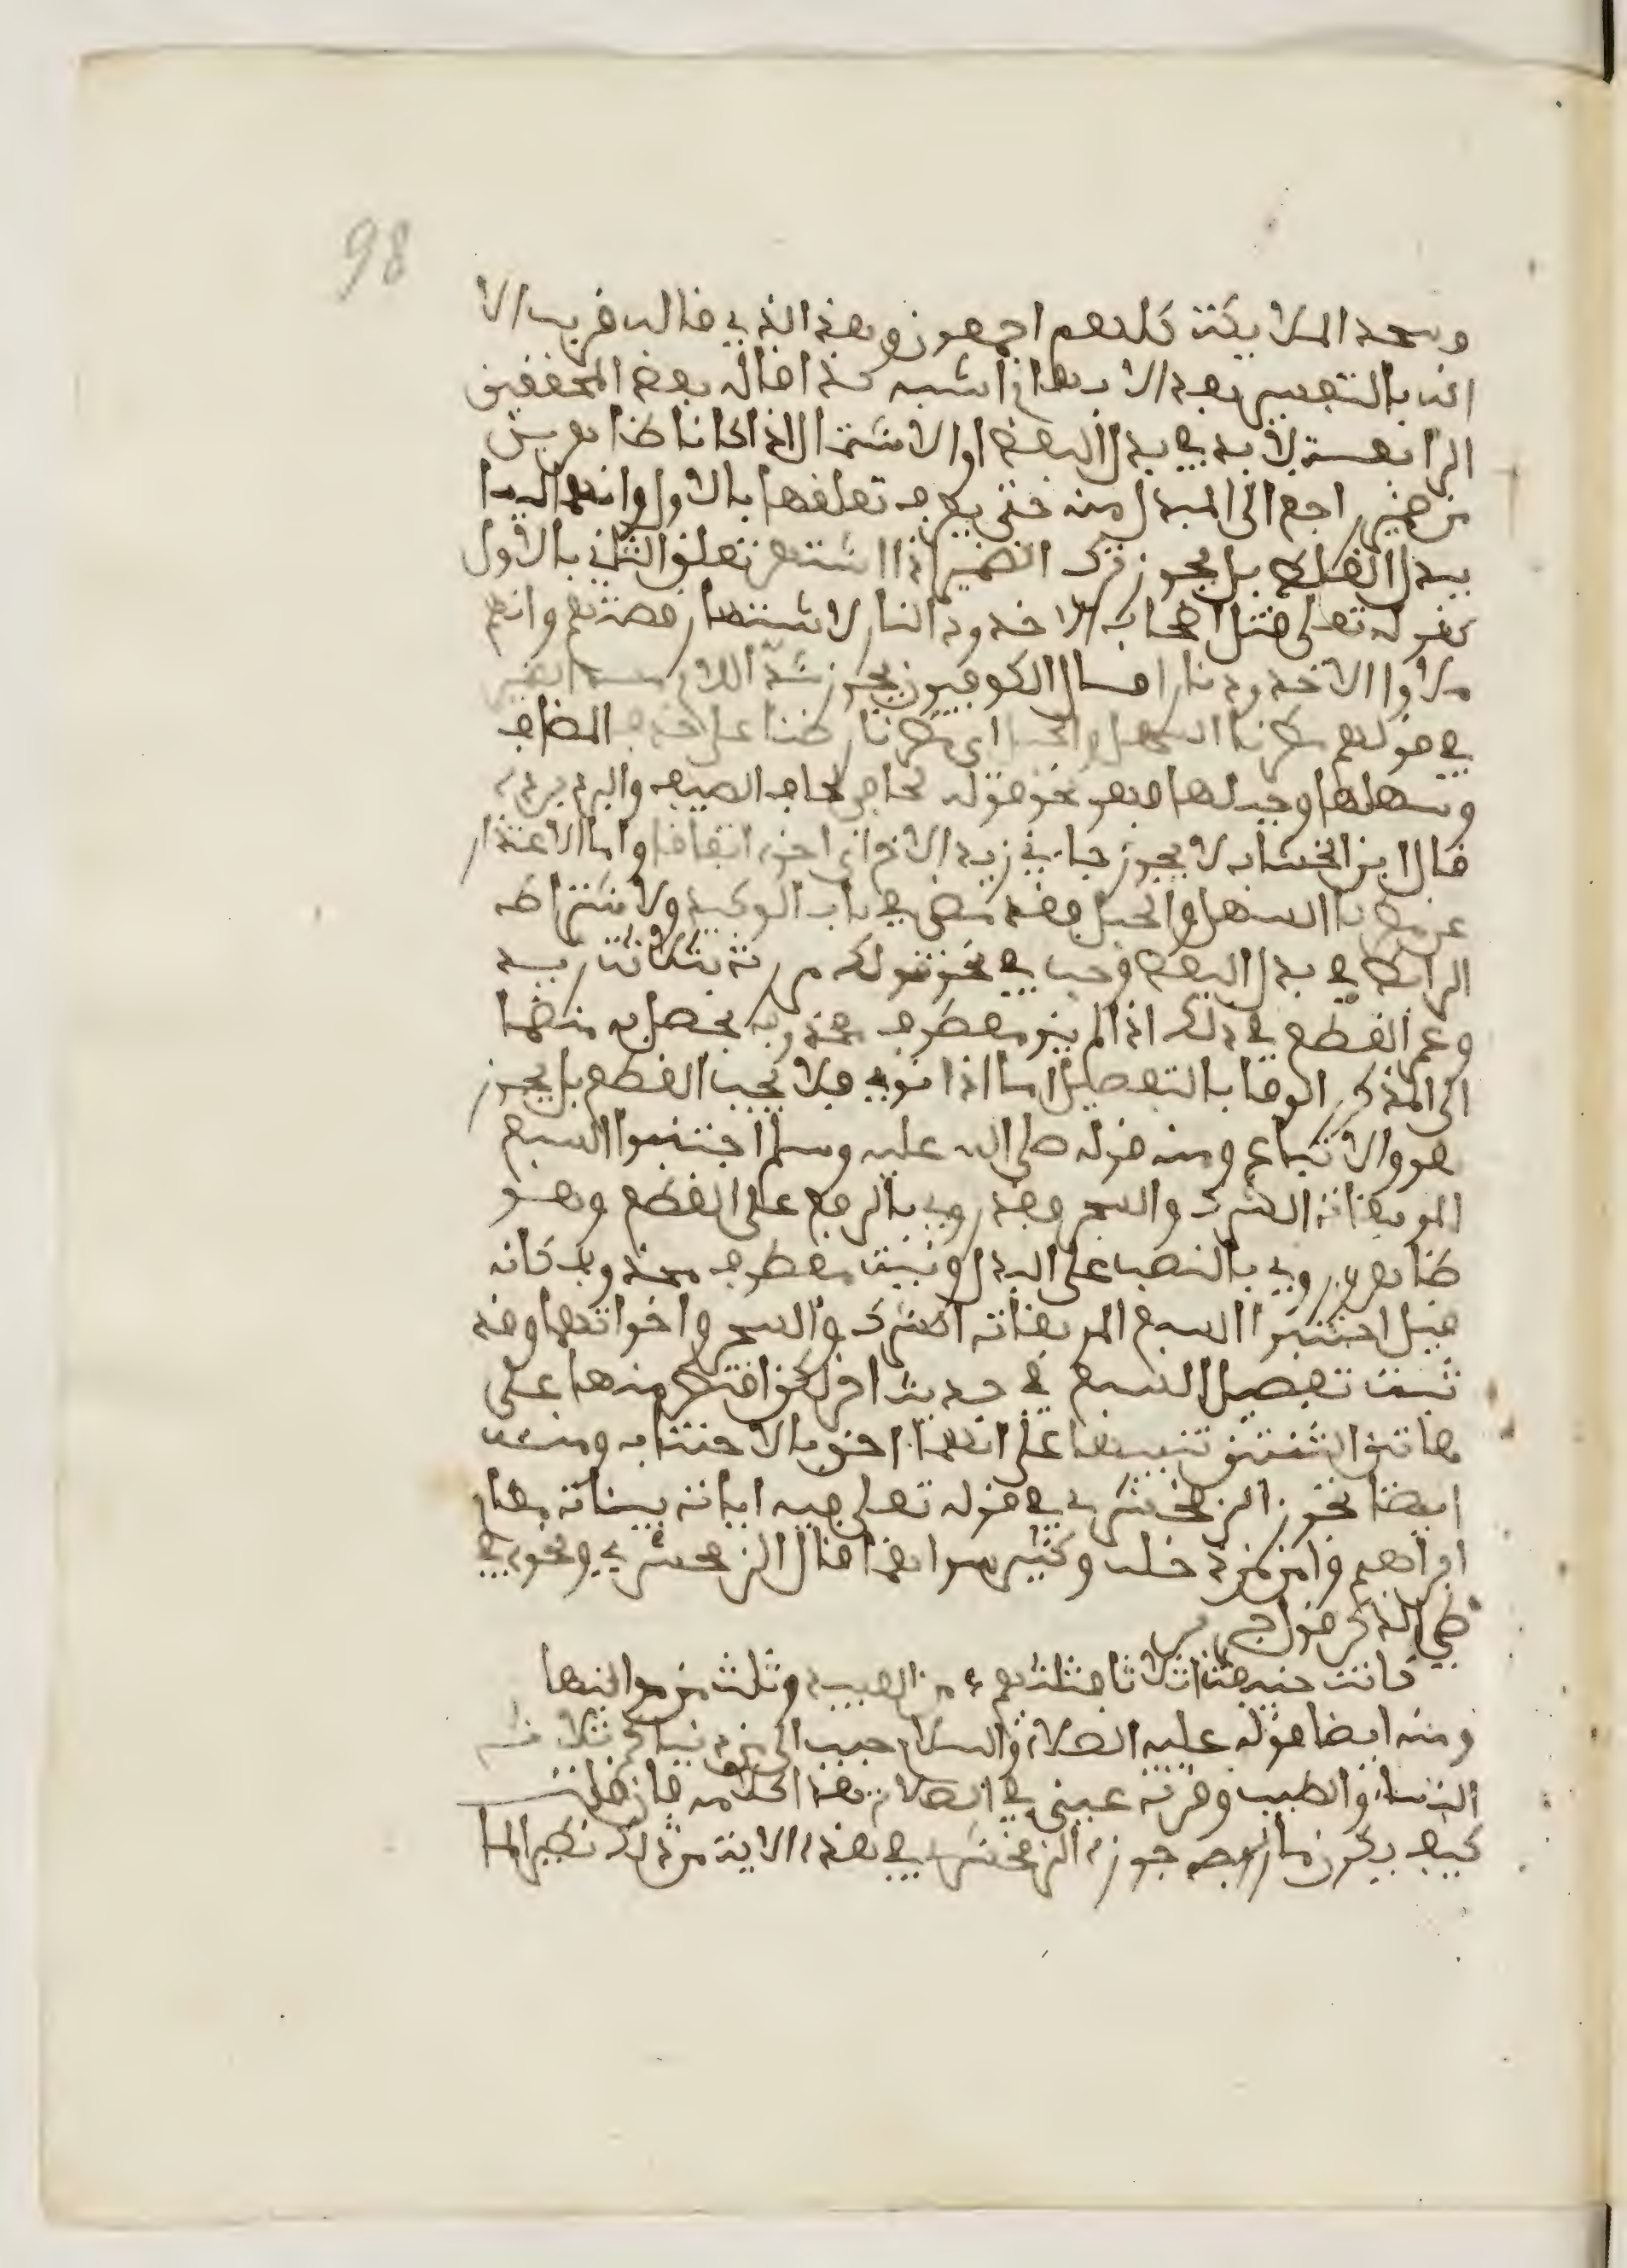 98
وسجد الملايكة كلهم اجمعون وهذا الذي قاله قريب الا
انه بالتفسير بعد الابهام اشبه كذا قاله بعض المحققين
الرابعة لابد في بدل البعض او الاشتمال اذا كانا ظاهرين
من ضمير راجع الى المبدل منه حتى يعرف تعلقهما بالاول وانهما ليسا
ببدل الغلط بل يجوز ترك الضمير اذا اشتهر تعلق الثاني بالاول
كقوله تعلى قتل اصحاب الاخدود النار لاشتهار قصتهم وانهم
ملاوا الاخدود نارا قال الكوفيون يجوز اللام الضمير
في قولهم مطرنا السهل والجبل اي مطرنا ارضنا على حذف المضاف
وسهلها وجبلها فهو نحو قوله لحافي لحاف الضيف والبرد برده
قال ابن الخشاب لا يجوز جاني زيد الاخ اي اخوه اتفاقا واما الاعتذار
عن مطرنا السهل والجبل فقد مضى في باب التوكيد ولاشتراط
الرابط في بدل البعض وجب في نحو قولك مررت بثلاثة زيد
وعمر القطع في ذلك اذا لم ينو معطوف محذوف يحصل به منهما
الى المذكور الوفا بالتفصيل اما اذا نوي فلا يجب القطع بل يجوز
هو والاتباع ومنه قوله صلى الله عليه وسلم اجتنبوا السبع
الموبقات الشرك والسحر وقد روي بالرفع على القطع وهو
ظاهر وروي بالنصب على البدل ونية معطوف محذوف كانه
قيل اجتنبوا السبع الموبقات الشرك والسحر واخواتهما وقد
ثبت تفصيل السبع في حديث اخر لكن اقتصر منها على
هاتين الثنتين تنبيها على انهما احق بالاجتناب ومنه
ايضا تجويز الزمخشري في قوله تعلى فيه ايات بينات مقام
ابراهيم وامن من دخله وكثير سواهما قال الزمخشري ونحوه في
طي الذكر قول جرير
كانت حنيفة اثلاثا فثلثهم من العبيد وثلث من مواليها
ومنه ايضا قوله عليه الصلاة والسلام حبب الي من دنياكم ثلاث
النساء والطيب وقرت عيني في الصلاة هذا كلامه فان قلت
كيف يكون ما جوزه الزمخشري في هذه الاية من ذلك نظير الما